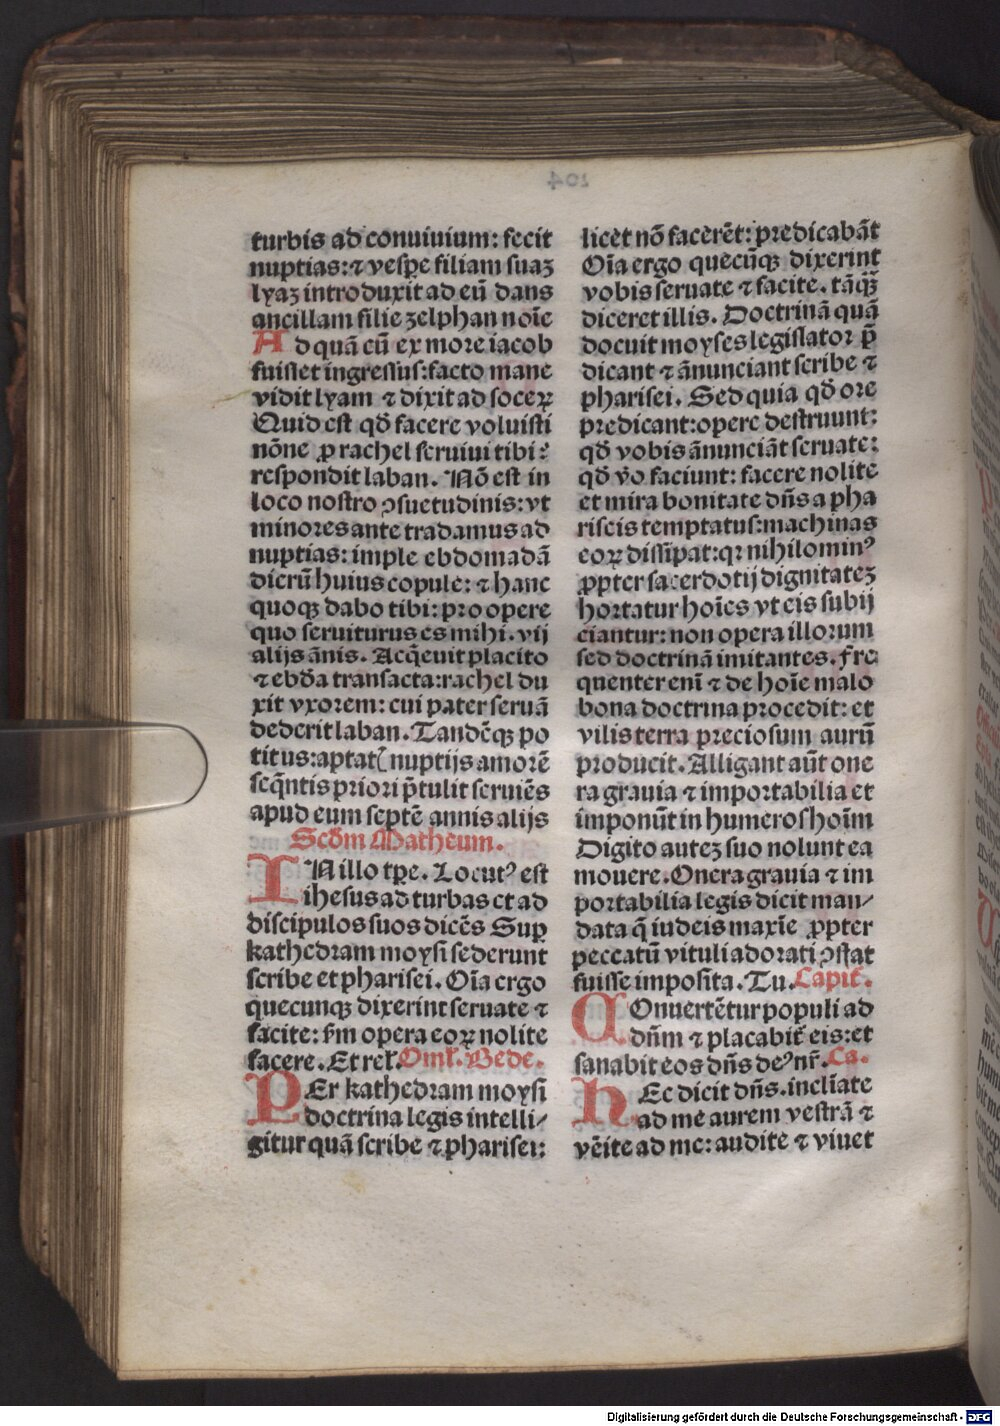 turbis ad conuiuium: fecit
nuptias: ⁊ vesꝑe filiam suaꝫ
lyaꝫ introduxit ad eū dans
ancillam filie zelphan noīe
Ad quā cū ex more iacob
fuisset ingressus: facto mane
vidit lyam ⁊ dixit ad soceꝝ
Quid est qd̄ facere voluisti
nōne ꝓ rachel seruiui tibi:
respondit laban. Nō est in
loco nostro ꝯsuetudinis: vt
minores ante tradamus ad
nuptias: imple ebdomadā
dierū huius copule: ⁊ hanc
quoqꝫ dabo tibi: pro opere
quo seruiturus es mihi. vij
alijs ānis. Acq̄euit placito
⁊ ebd̄a transacta: rachel du
xit vxorem: cui pater seruā
dederit laban. Tandēqꝫ po
titus: aptat᷑ nuptijs amorē
seq̄ntis priori p̄tulit seruiēs
apud eum septē annis alijs
Scd̄m Matheum.
IN illo tꝑe. Locutꝰ est
ihesus ad turbas et ad
discipulos suos dicēs Suꝑ
kathedram moysi sederunt
scribe et pharisei. Oīa ergo
quecunqꝫ dixerint seruate ⁊
facite: s̄m opera eoꝝ nolite
facere. Et rel̄. Oml̄. Bede.
PEr kathedram moysi
doctrina legis intelli⸗
gitur quā scribe ⁊ pharisei:
licet nō facerēt: predicabāt
Oīa ergo quecūqꝫ dixerint
vobis seruate ⁊ facite. tāqꝫ̄
diceret illis. Doctrinā quā
docuit moyses legislator p̄
dicant ⁊ ānunciant scribe ⁊
pharisei. Sed quia qd̄ ore
predicant: opere destruunt:
qd̄ vobis ānunciāt seruate:
qd̄ v̄o faciunt: facere nolite
et mira bonitate dn̄s a pha
riseis temptatus: machinas
eoꝝ dissīpat: qꝛ nihilominꝰ
ꝓpter sacerdotij dignitateꝫ
hortatur hoīes vt eis subij
ciantur: non opera illorum
sed doctrinā imitantes. fre
quenter enī ⁊ de hoīe malo
bona doctrina procedit: et
vilis terra preciosum aurū
producit. Alligant aūt one
ra grauia ⁊ importabilia et
imponūt in humeros hoīm
Digito auteꝫ suo nolunt ea
mouere. Onera grauia ⁊ im
portabilia legis dicit man⸗
data q̄ iudeis maxīe ꝓpter
peccatū vituli adorati ꝯstat
fuisse imposita. Tu. Capit̄.
COnuertētur populi ad
dn̄m ⁊ placabit᷑ eis: et
sanabit eos dn̄s deꝰ nr̄. Ca.
HEc dicit dn̄s. inclīate
ad me aurem vestrā ⁊
vēite ad me: audite ⁊ viuet
104
Digitalisierung gefördert durch die Deutsche Forschungsgemeinschaft - DFG